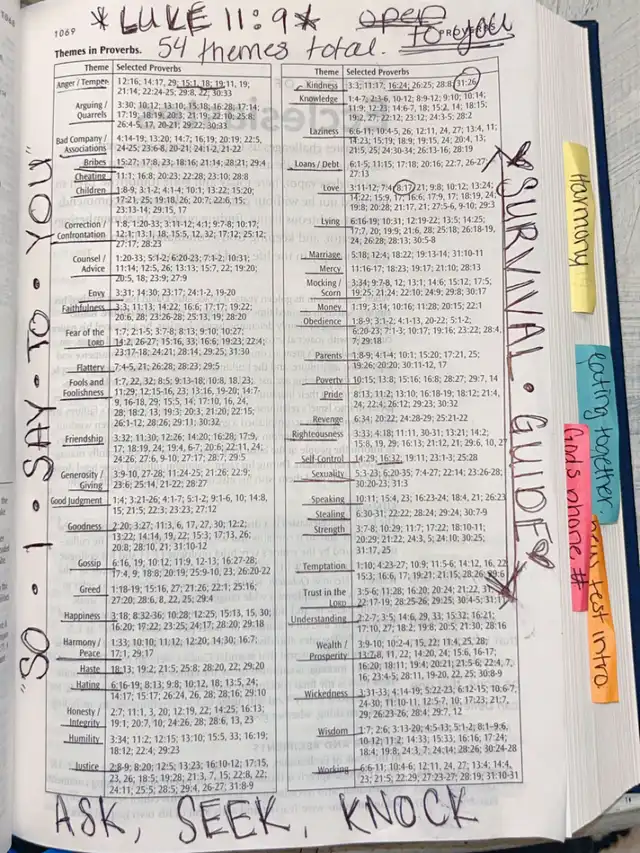 1069
*LUKE 11:9*
open
to you
PROVERBS
Themes in Proverbs.
54 themes total.
Theme Selected Proverbs
Anger / Temper 12:16; 14:17, 29; 15:1, 18; 19:11, 19;
21:14; 22:24-25; 29:8, 22; 30:33
Arguing / 3:30; 10:12; 13:10; 15:18; 16:28; 17:14;
Quarrels 17:19; 18:19; 20:3; 21:19; 22:10; 25:8;
26:4-5, 17, 20-21; 29:22; 30:33
Bad Company / 4:14-19; 13:20; 14:7; 16:19; 20:19; 22:5,
Associations 24-25; 23:6-8, 20-21; 24:1-2, 21-22
Bribes 15:27; 17:8, 23; 18:16; 21:14; 28:21; 29:4
Cheating 11:1; 16:8; 20:23; 22:28; 23:10; 28:8
Children 1:8-9; 3:1-2; 4:1-4; 10:1; 13:22; 15:20;
17:21, 25; 19:18, 26; 20:7; 22:6, 15;
23:13-14; 29:15, 17
Correction / 1:8; 1:20-33; 3:11-12; 4:1; 9:7-8; 10:17;
Confrontation 12:1; 13:1, 18; 15:5, 12, 32; 17:12; 25:12;
27:17; 28:23
Counsel / 1:20-33; 5:1-2; 6:20-23; 7:1-2; 10:31;
Advice 11:14; 12:5, 26; 13:13; 15:7, 22; 19:20;
20:5, 18; 23:9; 27:9
Envy 3:31; 14:30; 23:17; 24:1-2, 19-20
Faithfulness 3:3; 11:13; 14:22; 16:6; 17:17; 19:22;
20:6, 28; 23:26-28; 25:13, 19; 28:20
Fear of the 1:7; 2:1-5; 3:7-8; 8:13; 9:10; 10:27;
LORD 14:2, 26-27; 15:16, 33; 16:6; 19:23; 22:4;
23:17-18; 24:21; 28:14; 29:25; 31:30
Flattery 7:4-5, 21; 26:28; 28:23; 29:5
Fools and 1:7, 22, 32; 8:5; 9:13-18; 10:8, 18, 23;
Foolishness 11:29; 12:15-16, 23; 13:16, 19-20; 14:7-
9, 16-18, 29; 15:5, 14; 17:10, 16, 24,
28; 18:2, 13; 19:3; 20:3; 21:20; 22:15;
26:1-12; 28:26; 29:11; 30:32
Friendship 3:32; 11:30; 12:26; 14:20; 16:28; 17:9,
17; 18:19, 24; 19:4, 6-7; 20:6; 22:11, 24;
24:26; 27:6, 9-10; 27:17; 28:7; 29:5
Generosity / 3:9-10, 27-28; 11:24-25; 21:26; 22:9;
Giving 23:6; 25:14, 21-22; 28:27
Good Judgment 1:4; 3:21-26; 4:1-7; 5:1-2; 9:1-6, 10; 14:8,
15; 21:5; 22:3; 23:23; 27:12
Goodness 2:20; 3:27; 11:3, 6, 17, 27, 30; 12:2;
13:22; 14:14, 19, 22; 15:3; 17:13, 26;
20:8; 28:10, 21; 31:10-12
Gossip 6:16, 19; 10:12; 11:9, 12-13; 16:27-28;
17:4, 9; 18:8; 20:19; 25:9-10, 23; 26:20-22
Greed 1:18-19; 15:16, 27; 21:26; 22:1; 25:16;
27:20; 28:6, 8, 22, 25; 29:4
Happiness 3:18; 8:32-36; 10:28; 12:25; 15:13, 15, 30;
16:20; 17:22; 23:25; 24:17; 28:20; 29:18
Harmony / 1:33; 10:10; 11:12; 12:20; 14:30; 16:7;
Peace 17:1; 29:17
Haste 18:13; 19:2; 21:5; 25:8; 28:20, 22; 29:20
Hating 6:16-19; 8:13; 9:8; 10:12, 18; 13:5, 24;
14:17; 15:17; 26:24, 26, 28; 28:16; 29:10
Honesty / 2:7; 11:1, 3, 20; 12:19, 22; 14:25; 16:13;
Integrity 19:1; 20:7, 10; 24:26, 28; 28:6, 13, 23
Humility 3:34; 11:2; 12:15; 13:10; 15:5, 33; 16:19;
18:12; 22:4; 29:23
Justice 2:8-9; 8:20; 12:5; 13:23; 16:10-12; 17:15,
23, 26; 18:5; 19:28; 21:3, 7, 15; 22:8, 22;
24:11; 25:5; 28:5; 29:4, 26-27; 31:8-9
Theme Selected Proverbs
Kindness 3:3; 11:17; 16:24; 26:25; 28:8; 31:26
Knowledge 1:4-7; 2:3-6, 10-12; 8:9-12; 9:10; 10:14;
11:9; 12:23; 14:6-7, 18; 15:2, 14; 18:15;
19:2, 27; 22:12; 23:12; 24:3-5; 28:2
Laziness 6:6-11; 10:4-5, 26; 12:11, 24, 27; 13:4, 11;
14:23; 15:19; 18:9; 19:15, 24; 20:4, 13;
21:5, 25; 24:30-34; 26:13-16; 28:19
Loans / Debt 6:1-5; 11:15; 17:18; 20:16; 22:7, 26-27;
27:13
Love 3:11-12; 7:4; 8:17, 21; 9:8; 10:12; 13:24;
14:22; 15:9, 17; 16:6; 17:9, 17; 18:19, 24;
19:8; 20:28; 21:17, 21; 27:5-6, 9-10; 29:3
Lying 6:16-19; 10:31; 12:19-22; 13:5; 14:25;
17:7, 20; 19:9; 21:6, 28; 25:18; 26:18-19,
24, 26:28; 28:13; 30:5-8
Marriage 5:18; 12:4; 18:22; 19:13-14; 31:10-11
Mercy 11:16-17; 18:23; 19:17; 21:10; 28:13
Mocking / 3:34; 9:7-8, 12; 13:1; 14:6; 15:12; 17:5;
Scorn 19:25; 21:24; 22:10; 24:9; 29:8; 30:17
Money 1:19; 3:14; 10:16; 11:28; 20:15; 22:1
Obedience 1:8-9; 3:1-2; 4:1-13, 20-22; 5:1-2;
6:20-23; 7:1-3; 10:17; 19:16; 23:22; 28:4,
7; 29:18
Parents 1:8-9; 4:1-4; 10:1; 15:20; 17:21, 25;
19:26; 20:20; 30:11-12, 17
Poverty 10:15; 13:8; 15:16; 16:8; 28:27; 29:7, 14
Pride 8:13; 11:2; 13:10; 16:18-19; 18:12; 21:4,
24; 22:4; 26:12; 29:23; 30:32
Revenge 6:34; 20:22; 24:28-29; 25:21-22
Righteousness 3:33; 4:18; 11:11, 30-31; 13:21; 14:2;
15:8, 19, 29; 16:13; 21:12, 21; 29:6, 10, 27
Self-Control 14:29; 16:32; 19:11; 23:1-3; 25:28
Sexuality 5:3-23; 6:20-35; 7:4-27; 22:14; 23:26-28;
30:20-23; 31:3
Speaking 10:11; 15:4, 23; 16:23-24; 18:4, 21; 26:23
Stealing 6:30-31; 22:22; 28:24; 29:24; 30:7-9
Strength 3:7-8; 10:29; 11:7; 17:22; 18:10-11;
20:29; 21:22; 24:3, 5; 24:10; 30:25;
31:17, 25
Temptation 1:10; 4:23-27; 10:9; 11:5-6; 14:12, 16, 22
15:3; 16:6, 17; 19:21; 21:15; 28:26; 29:6
Trust in the 3:5-6; 11:28; 16:20; 20:24; 21:22, 31
LORD 22:17-19; 28:25-26; 29:25; 30:4-5; 31:11
Understanding 2:2-7; 3:5; 14:6, 29, 33; 15:32; 16:21;
17:10, 27; 18:2; 19:8; 20:5; 21:30; 28:16
Wealth / 3:9-10; 10:2-4, 15, 22; 11:4, 25, 28;
Prosperity 13:7-8, 11, 22; 14:20, 24; 15:6, 16-17;
16:20; 18:11; 19:4; 20:21; 21:5-6; 22:4, 7,
16; 23:4-5; 28:11, 19-20, 22, 25; 30:8-9
Wickedness 3:31-33; 4:14-19; 5:22-23; 6:12-15; 10:6-7,
24-30; 11:10-11; 12:5-7, 10; 17:23; 21:7,
29; 26:23-26; 28:4; 29:7, 12
Wisdom 1:7; 2:6; 3:13-20; 4:5-13; 5:1-2; 8:1–9:6,
10-12; 11:2; 14:33; 15:33; 16:16; 17:24;
18:4; 19:8; 24:3, 7; 24:14; 28:26; 30:24-28
Working 6:6-11; 10:4-6; 12:11, 24, 27; 13:4; 14:4,
23; 21:5; 22:29; 27:23-27; 28:19; 31:10-31
"SO·I·SAY·TO·YOU"
*SURVIVAL·GUIDE*
Harmony
eating together
God's phone #
new test intro
ASK, SEEK, KNOCK